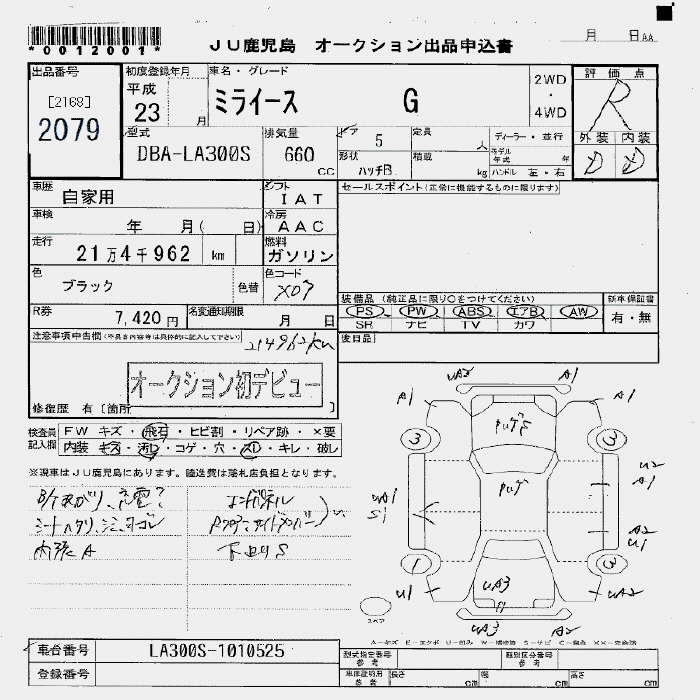 *0012001*
JU鹿児島 オークション出品申込書
月 日 AA
出品番号
[2168]
2079
初度登録年月
平成
23 月
車名・グレード
ミライース G
2WD
・
4WD
評価点
R
外装 内装
D D
型式
DBA-LA300S
排気量
660 CC
ドア 5
形状 ハッチB
定員 人
積載 kg
ディーラー・並行
モデル年式 年
ハンドル 左・右
車歴 自家用
シフト IAT
セールスポイント(正常に機能するものに限ります)
車検 年 月( 日)
冷房 AAC
走行 21万4千962 km
燃料 ガソリン
色 ブラック 色替
色コード X07
装備品(純正品に限り○をつけてください)
新車保証書
PS PW ABS エアB AW
有・無
SR ナビ TV カワ
R券 7,420円
名変通知期限 月 日
後日品
注意事項申告欄(不具合内容等は具体的に記入して下さい)
214962km
オークション初デビュー
修復歴 有 [箇所
検査員記入欄
FW キズ・飛石・ヒビ割・リペア跡・×要
内装 キズ・汚レ・コゲ・穴・スレ・キレ・破レ
※現車はJU鹿児島にあります。陸送費は落札店負担となります。
B/Tあがり、充電?
エンドパネル
シートヘタリ、シミ、ヨゴレ
内張A
下回りS
A1 UA2 A1
3 3
ルーフ
U2
A1
UA1
S1
A2
U1
1 3
U1 UA3 UA2
UA3 A2
スペア
車台番号 LA300S-1010525
登録番号
型式指定番号 参考
類別区分番号 参考
車庫証明用 参考
長さ cm 幅 cm 高さ cm